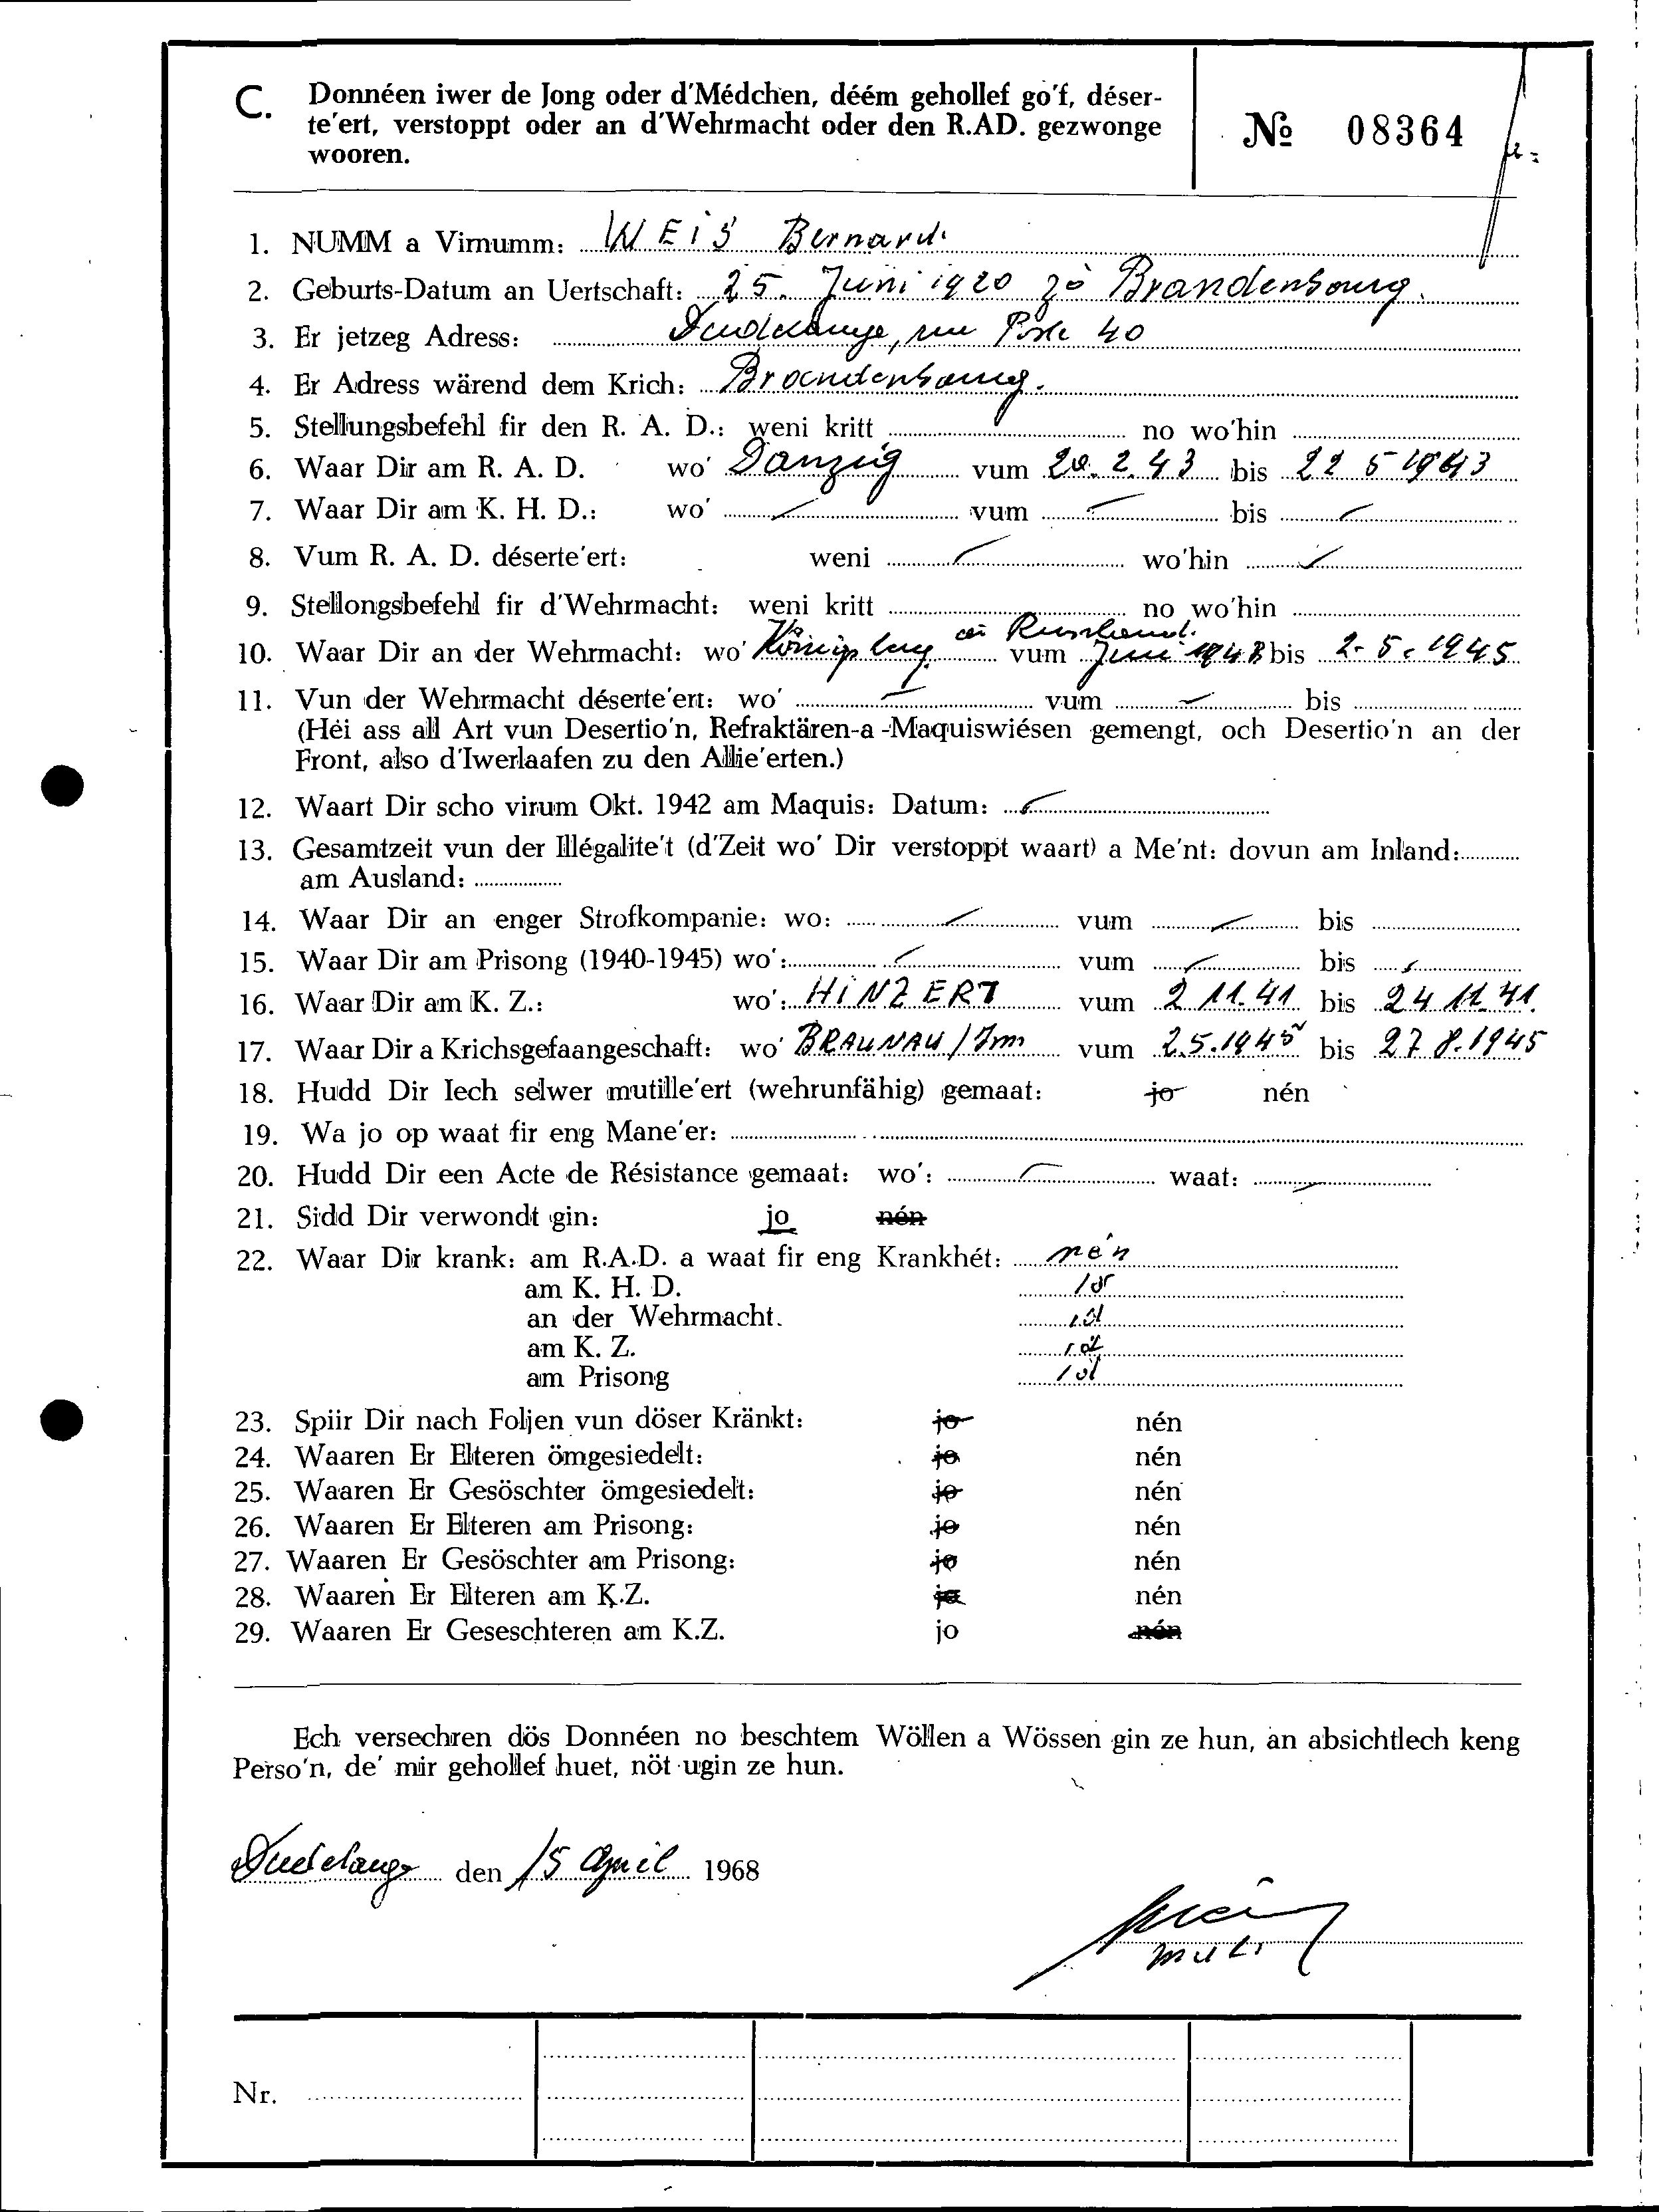 C. Donnéen iwer de Jong oder d'Médchen, déém gehollef go'f, déser-
te'ert, verstoppt oder an d'Wehrmacht oder den R.AD. gezwonge
wooren.
№ 08364
1. NUMM a Virnumm: WEIS Bernard.
2. Geburts-Datum an Uertschaft: 25. Juni 1920 zo Brandenbourg.
3. Er jetzeg Adress: Dudelange, rue Poste 40
4. Er Adress wärend dem Krich: Brandenbourg.
5. Stellungsbefehl fir den R. A. D.: weni kritt no wo'hin
6. Waar Dir am R. A. D. wo' Danzig vum 20. 2. 43 bis 22 5 1943
7. Waar Dir am K. H. D.: wo' vum bis
8. Vum R. A. D. déserte'ert: weni wo'hin
9. Stellongsbefehl fir d'Wehrmacht: weni kritt no wo'hin
10. Waar Dir an der Wehrmacht: wo' Königsberg Russland. vum Juni 1943 bis 2. 5. 1945
11. Vun der Wehrmacht déserte'ert: wo' vum bis
(Héi ass all Art vun Desertio'n, Refraktären-a -Maquiswiésen gemengt, och Desertio'n an der
Front, also d'Iwerlaafen zu den Allie'erten.)
12. Waart Dir scho virum Okt. 1942 am Maquis: Datum:
13. Gesamtzeit vun der Illégalite't (d'Zeit wo' Dir verstoppt waart) a Me'nt: dovun am Inland:
am Ausland:
14. Waar Dir an enger Strofkompanie: wo: vum bis
15. Waar Dir am Prisong (1940-1945) wo': vum bis
16. Waar Dir am K. Z.: wo': HINZERT vum 2 11. 41 bis 24 11 41.
17. Waar Dir a Krichsgefaangeschaft: wo' BRAUNAU / Inn vum 2.5.1945 bis 27 8. 1945
18. Hudd Dir Iech selwer mutille'ert (wehrunfähig) gemaat: jo nén
19. Wa jo op waat fir eng Mane'er:
20. Hudd Dir een Acte de Résistance gemaat: wo': waat:
21. Sidd Dir verwondt gin: jo nén
22. Waar Dir krank: am R.A.D. a waat fir eng Krankhét: nén
am K. H. D.
an der Wehrmacht.
am K. Z.
am Prisong
23. Spiir Dir nach Foljen vun döser Kränkt: jo nén
24. Waaren Er Elteren ömgesiedelt: jo nén
25. Waaren Er Gesöschter ömgesiedelt: jo nén
26. Waaren Er Elteren am Prisong: jo nén
27. Waaren Er Gesöschter am Prisong: jo nén
28. Waaren Er Elteren am K.Z. jo nén
29. Waaren Er Geseschteren am K.Z. jo nén
Ech versechren dös Donnéen no beschtem Wöllen a Wössen gin ze hun, an absichtlech keng
Perso'n, de' mir gehollef huet, nöt ugin ze hun.
Dudelange den 15 April 1968
Nr.